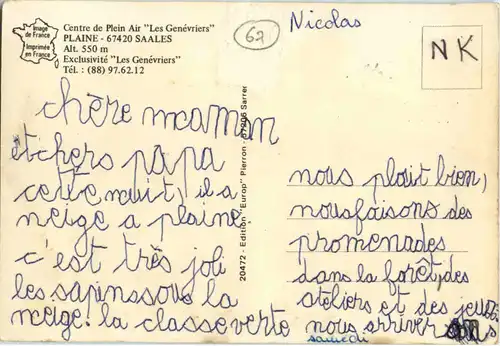 Image
de France
Imprimée
en France
Centre de Plein Air "Les Genévriers"
PLAINE - 67420 SAALES
Alt. 550 m
Exclusivité "Les Genévriers"
Tél. : (88) 97.62.12
67
Nicolas
NK
20472 - Edition "Europ" Pierron - 57206 Sarrer
chère maman
et chers papa
cette nuit, il a
neige a plaine
c'est très joli
les sapins sous la
neige! la classe verte
nous plait bien,
nous faisons des
promenades
dans la forêt, des
ateliers et des jeux
nous arriver
samedi